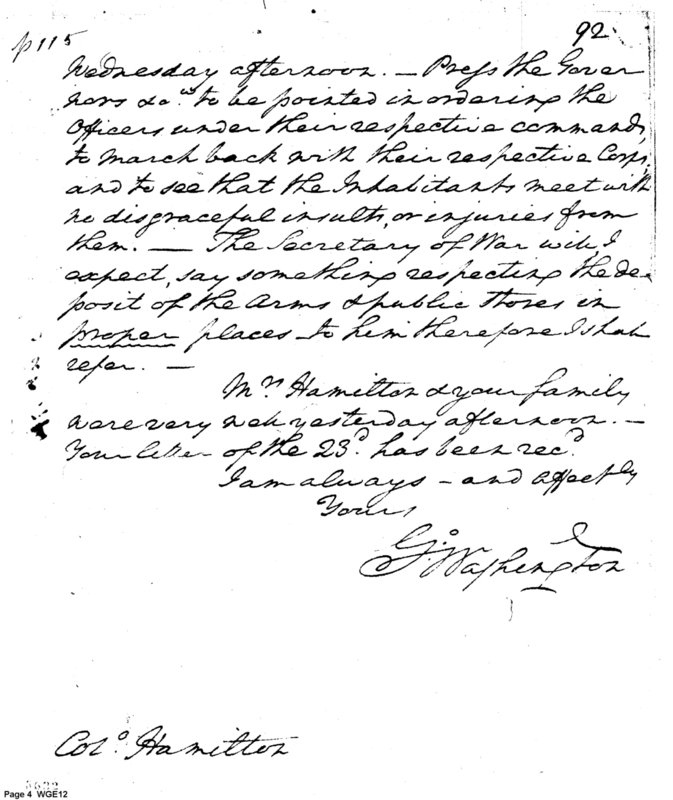 p115
92
Wednesday afternoon. — Press the Gover
nors &ca. to be pointed in ordering the
Officers under their respective commands,
to march back with their respective Corps.
and to see that the Inhabitants meet with
no disgraceful insults, or injuries from
them. — The Secretary of War will, I
expect, say something respecting the de-
posit of the Arms & public Stores in
proper places – to him therefore I shall
refer. —
Mrs. Hamilton & your family
were very well yesterday afternoon. —
Your letter of the 23d. has been recd.
I am always – and affectly
Yours
Go. Washington
Colo. Hamilton
Page 4 WGE12